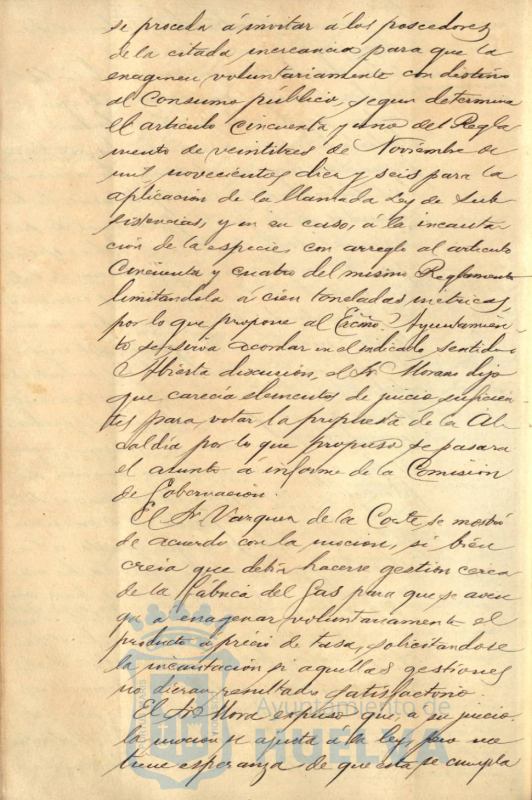 se proceda á invitar á los poseedores
de la citada mercancia para que la
enagenen voluntariamente con destino
al Consumo público, segun determina
el artículo cincuenta y uno del Regla
mento de veintitres de Noviembre de
mil novecientos diez y seis para la
aplicacion de la llamada Ley de Sub
sistencias, y en su caso, á la incauta
cion de la especie, con arreglo al artículo
Cincuenta y cuatro del mismo Reglamento
limitandola á cien toneladas métricas,
por lo que propone al Excmo. Ayuntamien
to se sirva acordar en el indicado sentido
Abierta discusion, el Sr. Morano dijo
que carecia elementos de juicio suficien
tes para votar la propuesta de la Al
caldía por lo que propuso se pasara
el asunto á informe de la Comision
de Gobernacion.
El Sr. Vazquez de la Corte se mostró
de acuerdo con la mocion, si bien
creia que debia hacerse gestion cerca
de la fábrica del Gas para que se aven
ga a enagenar voluntariamente el
producto á precio de tasa, solicitandose
la incautacion si aquellas gestiones
no dieran resultado satisfactorio.
El Sr. Mora expuso que, a su juicio
la mocion se ajusta á la ley, pero no
tiene esperanza de que esta se cumpla
Ayuntamiento de
HUELVA